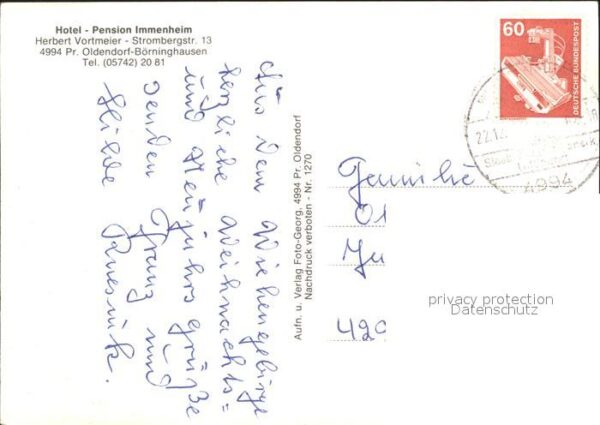 Hotel - Pension Immenheim
Herbert Vortmeier - Strombergstr. 13
4994 Pr. Oldendorf-Börninghausen
Tel. (05742) 20 81
Aus dem Wiehengebirge
herzliche Weihnachts=
und Neujahrsgrüße
senden Franz und
Hilde
Aufn. u. Verlag Foto-Georg, 4994 Pr. Oldendorf
Nachdruck verboten - Nr. 1270
60
DEUTSCHE BUNDESPOST
22.12
4994
Familie
Ol
Ju
420
privacy protection
Datenschutz